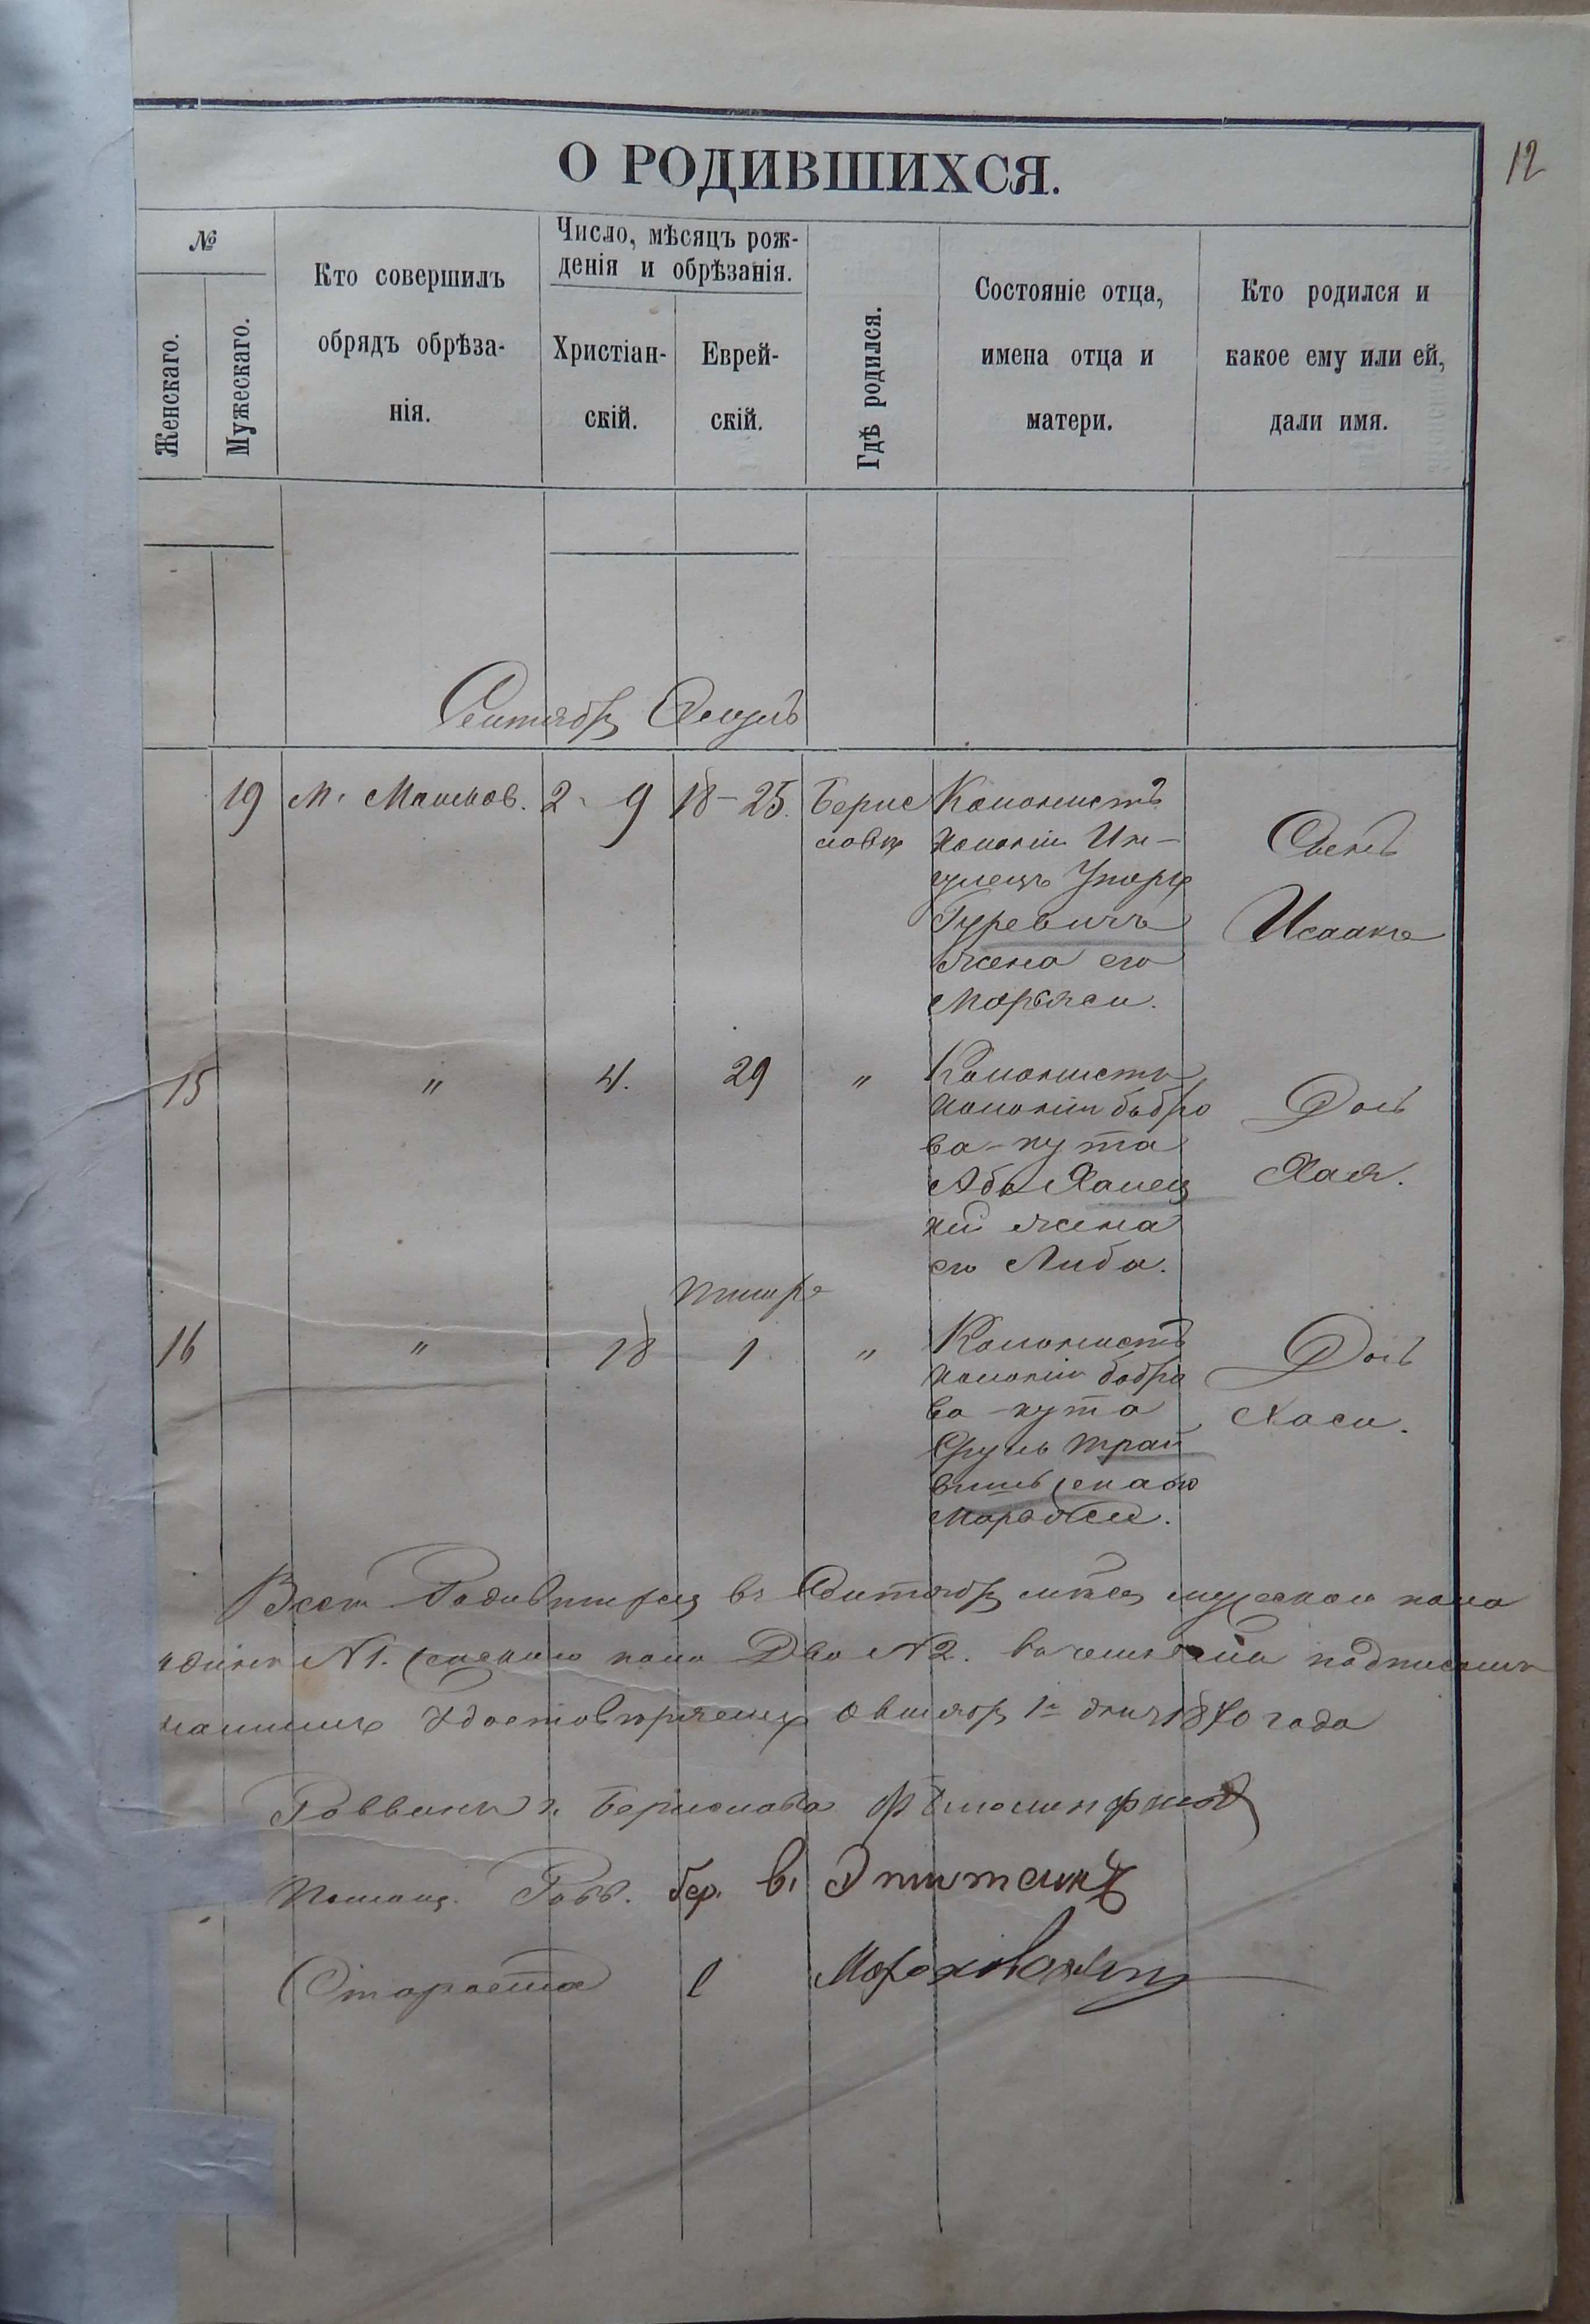 12
О РОДИВШИХСЯ.
№
Женскаго.
Мужескаго.
Кто совершилъ
обрядъ обрѣза-
нія.
Число, мѣсяцъ рож-
денія и обрѣзанія.
Христіан-
скій.
Еврей-
скій.
Гдѣ родился.
Состояніе отца,
имена отца и
матери.
Кто родился и
какое ему или ей,
дали имя.
Сентябр
19 М. 2 - 9 18 - 25. Берис
Колонистъ
колоніи Ин-
гулецъ
Гуревичъ
жена его
Марьяси.
Сынъ
Исаакъ
15 " 4. 29 "
Колонистъ
колоніи бобро
ва-кута
Аба
кій жена
его Либа.
Дочь
Хая.
Тишре
16 " 18 1 "
Колонистъ
колоніи бобро
ва-кута
Сруль Трай
жена его
Марьяси.
Дочь
Хаси.
Всего Родившихся въ Сентябр мѣсяц мужескаго пола
одинъ N1. женскаго пола Два N2. въ чемъ подписомъ
нашимъ Удостовѣряемъ Октябр 1го дня 1870 года
Раввинъ г. Берислава
Помощ. Равв. бер. в.
Староста